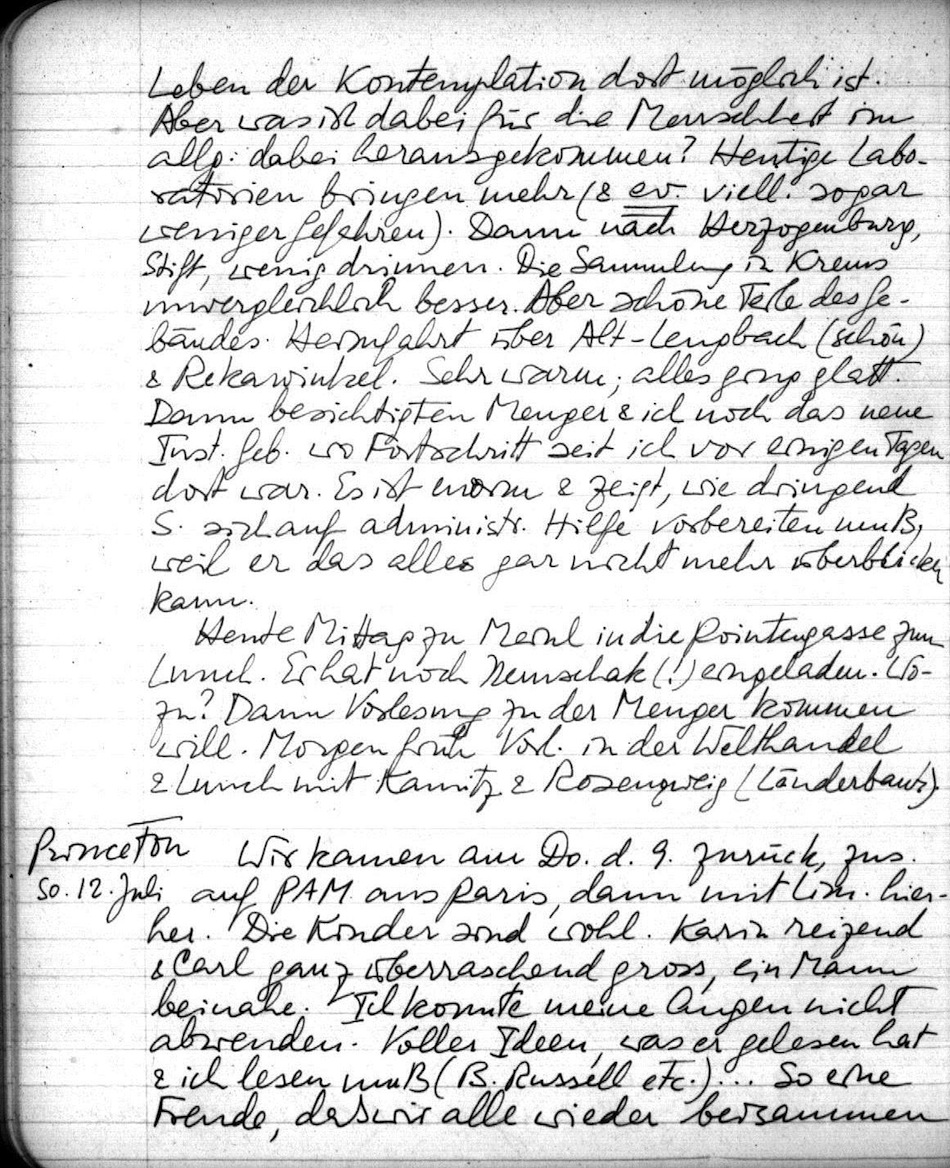 Leben der Kontemplation dort möglich ist.
Aber was ist dabei für die Menschheit im
allg. dabei herausgekommen? Heutige Labo-
ratorien bringen mehr (& ev. viell. sogar
weniger Gefahren). Dann nach Herzogenburg,
Stift, wenig drinnen. Die Sammlung in Krems
unvergleichlich besser. Aber schöne Teile des Ge-
bäudes. Heimfahrt über Alt-Lengbach (schön)
& Rekawinkel. Sehr warm; alles ging glatt.
Dann besichtigten Menger & ich noch das neue
Inst. Geb. wo Fortschritt seit ich vor einigen Tagen
dort war. Es ist enorm & zeigt, wie dringend
S. sich auf administr. Hilfe vorbereiten muß,
weil er das alles gar nicht mehr überblicken
kann.
Heute Mittag zu in die Pointengasse zum
Lunch. Er hat noch Nemschak (!) eingeladen. Wo-
zu? Dann Vorlesung zu der Menger kommen
will. Morgen früh Vorl. in der Welthandel
& Lunch mit Kamitz & Rosenzweig (Länderbank).
Princeton
So. 12. Juli
Wir kamen am Do. d. 9. zurück, zus.
auf PAM aus Paris, dann mit Lim. hier-
her. Die Kinder sind wohl. Karin reizend
& Carl ganz überraschend gross, ein Mann
beinahe. Ich konnte meine Augen nicht
abwenden. Voller Ideen, was er gelesen hat
& ich lesen muß (B. Russell etc.)... So eine
Freude, daß wir alle wieder beisammen